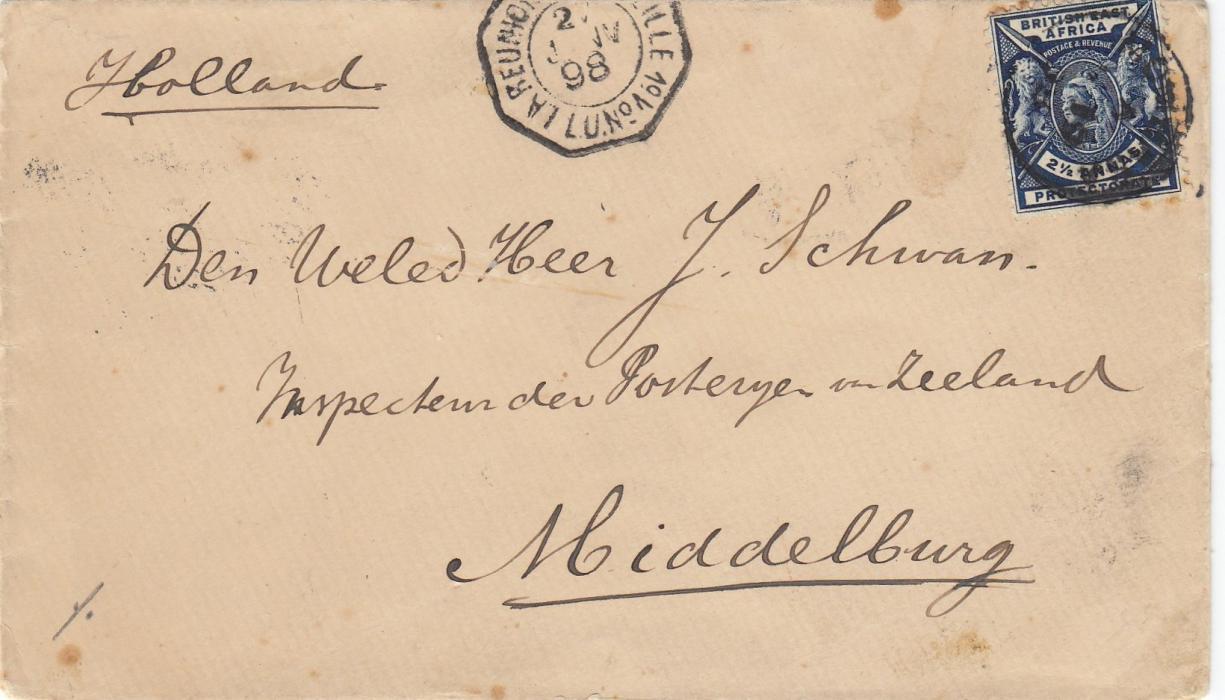 Holland
LA REUNION
ILLE
LU Nº 1
98
BRITISH EAST
AFRICA
POSTAGE & REVENUE
2½ ANNAS
PROTECTORATE
Den Weled Heer J. Schwan.
Inspecteur der Posteryen van Zeeland
Middelburg